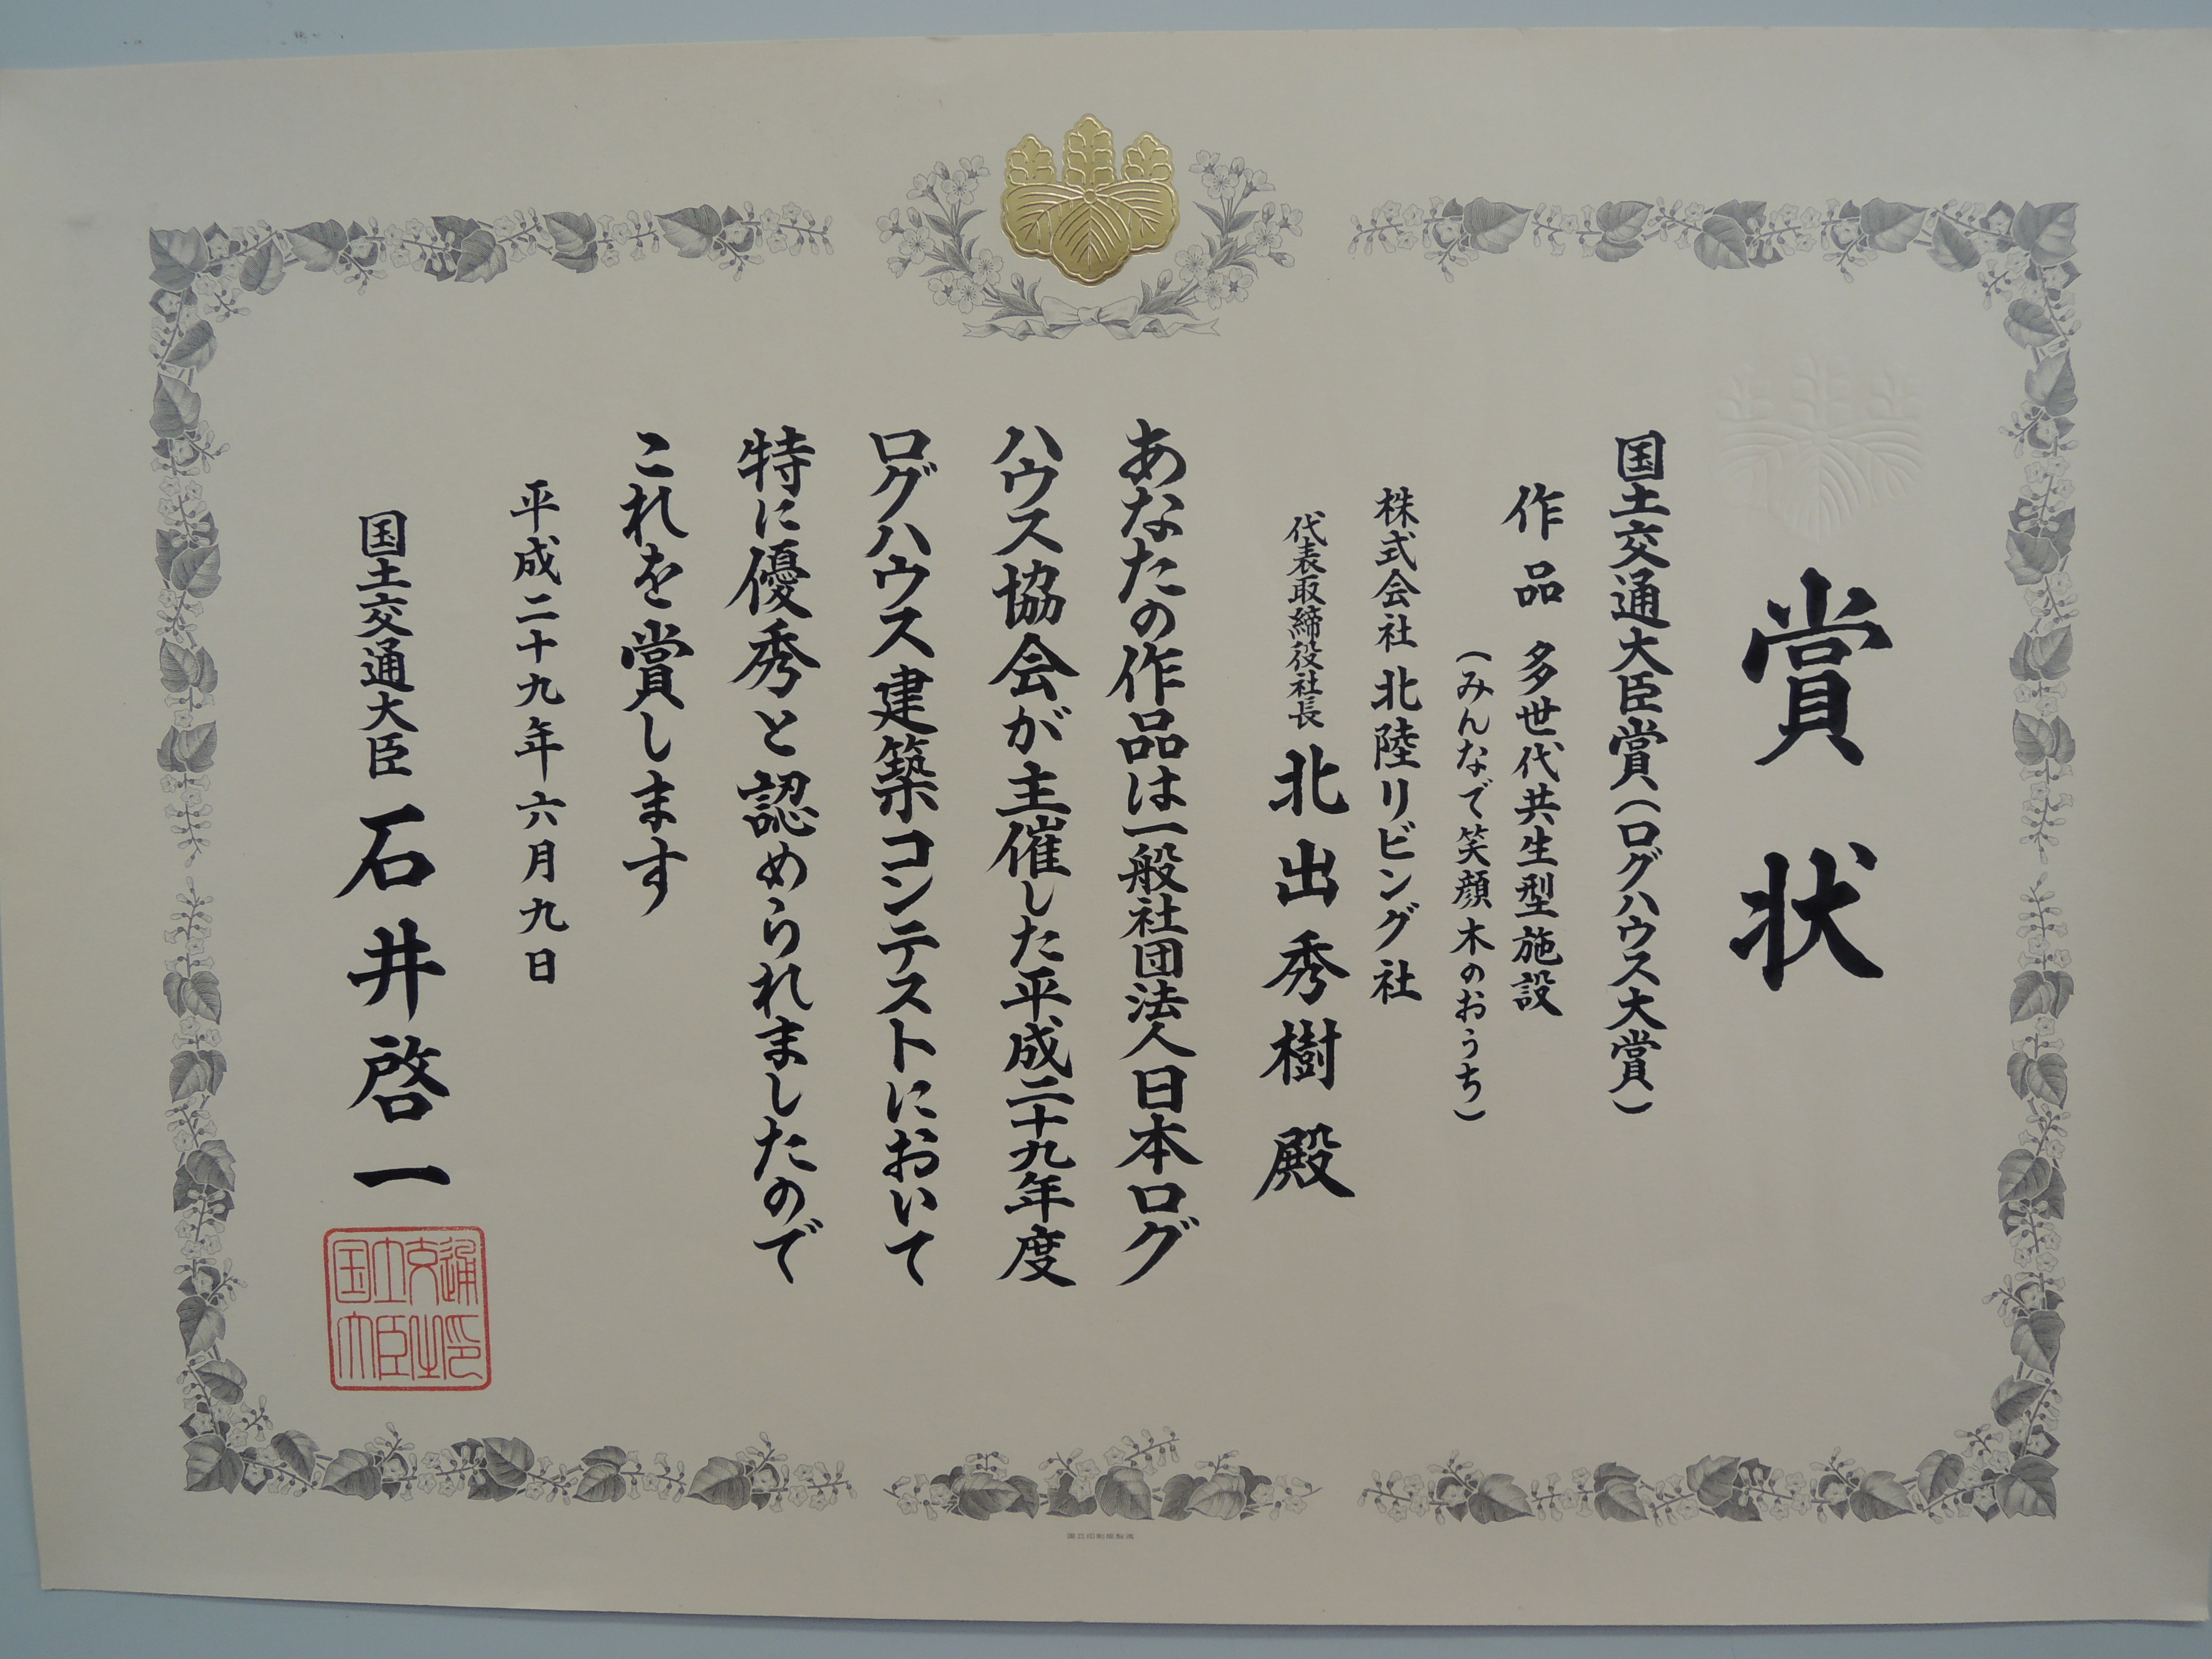 賞状
国土交通大臣賞(ログハウス大賞)
作品 多世代共生型施設
(みんなで笑顔木のおうち)
株式会社 北陸リビング社
代表取締役社長 北出秀樹殿
あなたの作品は一般社団法人日本ログ
ハウス協会が主催した平成二十九年度
ログハウス建築コンテストにおいて
特に優秀と認められましたので
これを賞します
平成二十九年六月九日
国土交通大臣 石井啓一
国土交通
大臣之印
国立印刷局製造